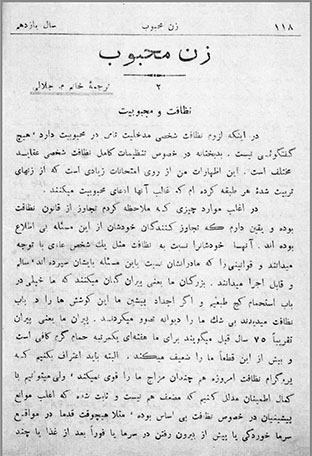 ۱۱۸ زن محبوب سال یازدهم
زن محبوب
۲
ترجمهٔ خانم م. جلالی
نظافت و محبوبیت
در اینکه لزوم نظافت شخصی مدخلیت تامی در محبوبیت دارد هیچ
گفتگوئی نیست. بدبختانه در خصوص تنظیمات کامل نظافت شخصی عقاید
مختلف است. این اظهارات من از روی امتحانات زیادی است که از زنهای
تربیت شدهٔ هر طبقه کرده ام که غالب آنها ادعای محبوبیت میکنند.
در اغلب موارد چیزی که ملاحظه کردم تجاوز از قانون نظافت
بوده و یقین دارم که تجاوز کنندگان خودشان از این مسئله بی اطلاع
بوده اند. آنها خودشانرا نسبت به نظافت مثل یک شخص عادی با توجه
میدانند و قوانینی را که مادرانشان نسبت باین مسئله بایشان سپرده اند، سالم
و قابل اجرا میدانند. بزرگان ما یعنی پیران گمان میکنند که ما خیلی در
باب استحمام کج طبعیم و اگر اجداد پیشین ما این کوشش ها را در باب
نظافت میدیدند بی شک ما را دیوانه تصور میکردند. پیران ما یعنی پیران
تقریباً ۷۵ سال قبل میگویند برای ما هفته‌ای یکمرتبه حمام گرم کافی است
و بیش از این قطعاً ما را ضعیف میکند، البته باید اعتراف بکنیم که
پروگرام نظافت امروزه هم چندان مزاج ما را قوی نمیکند، ولی میتوانیم با
کمال اطمینان مدلل کنیم که مضعف هم نیست و ثابت شده که اغلب موانع
پیشینیان در خصوص نظافت بی اساس بوده، مثلا هیچوقت قدما در مواقع
سرما خوردگی یا پیش از بیرون رفتن در سرما یا فوراً بعد از غذا یا چند